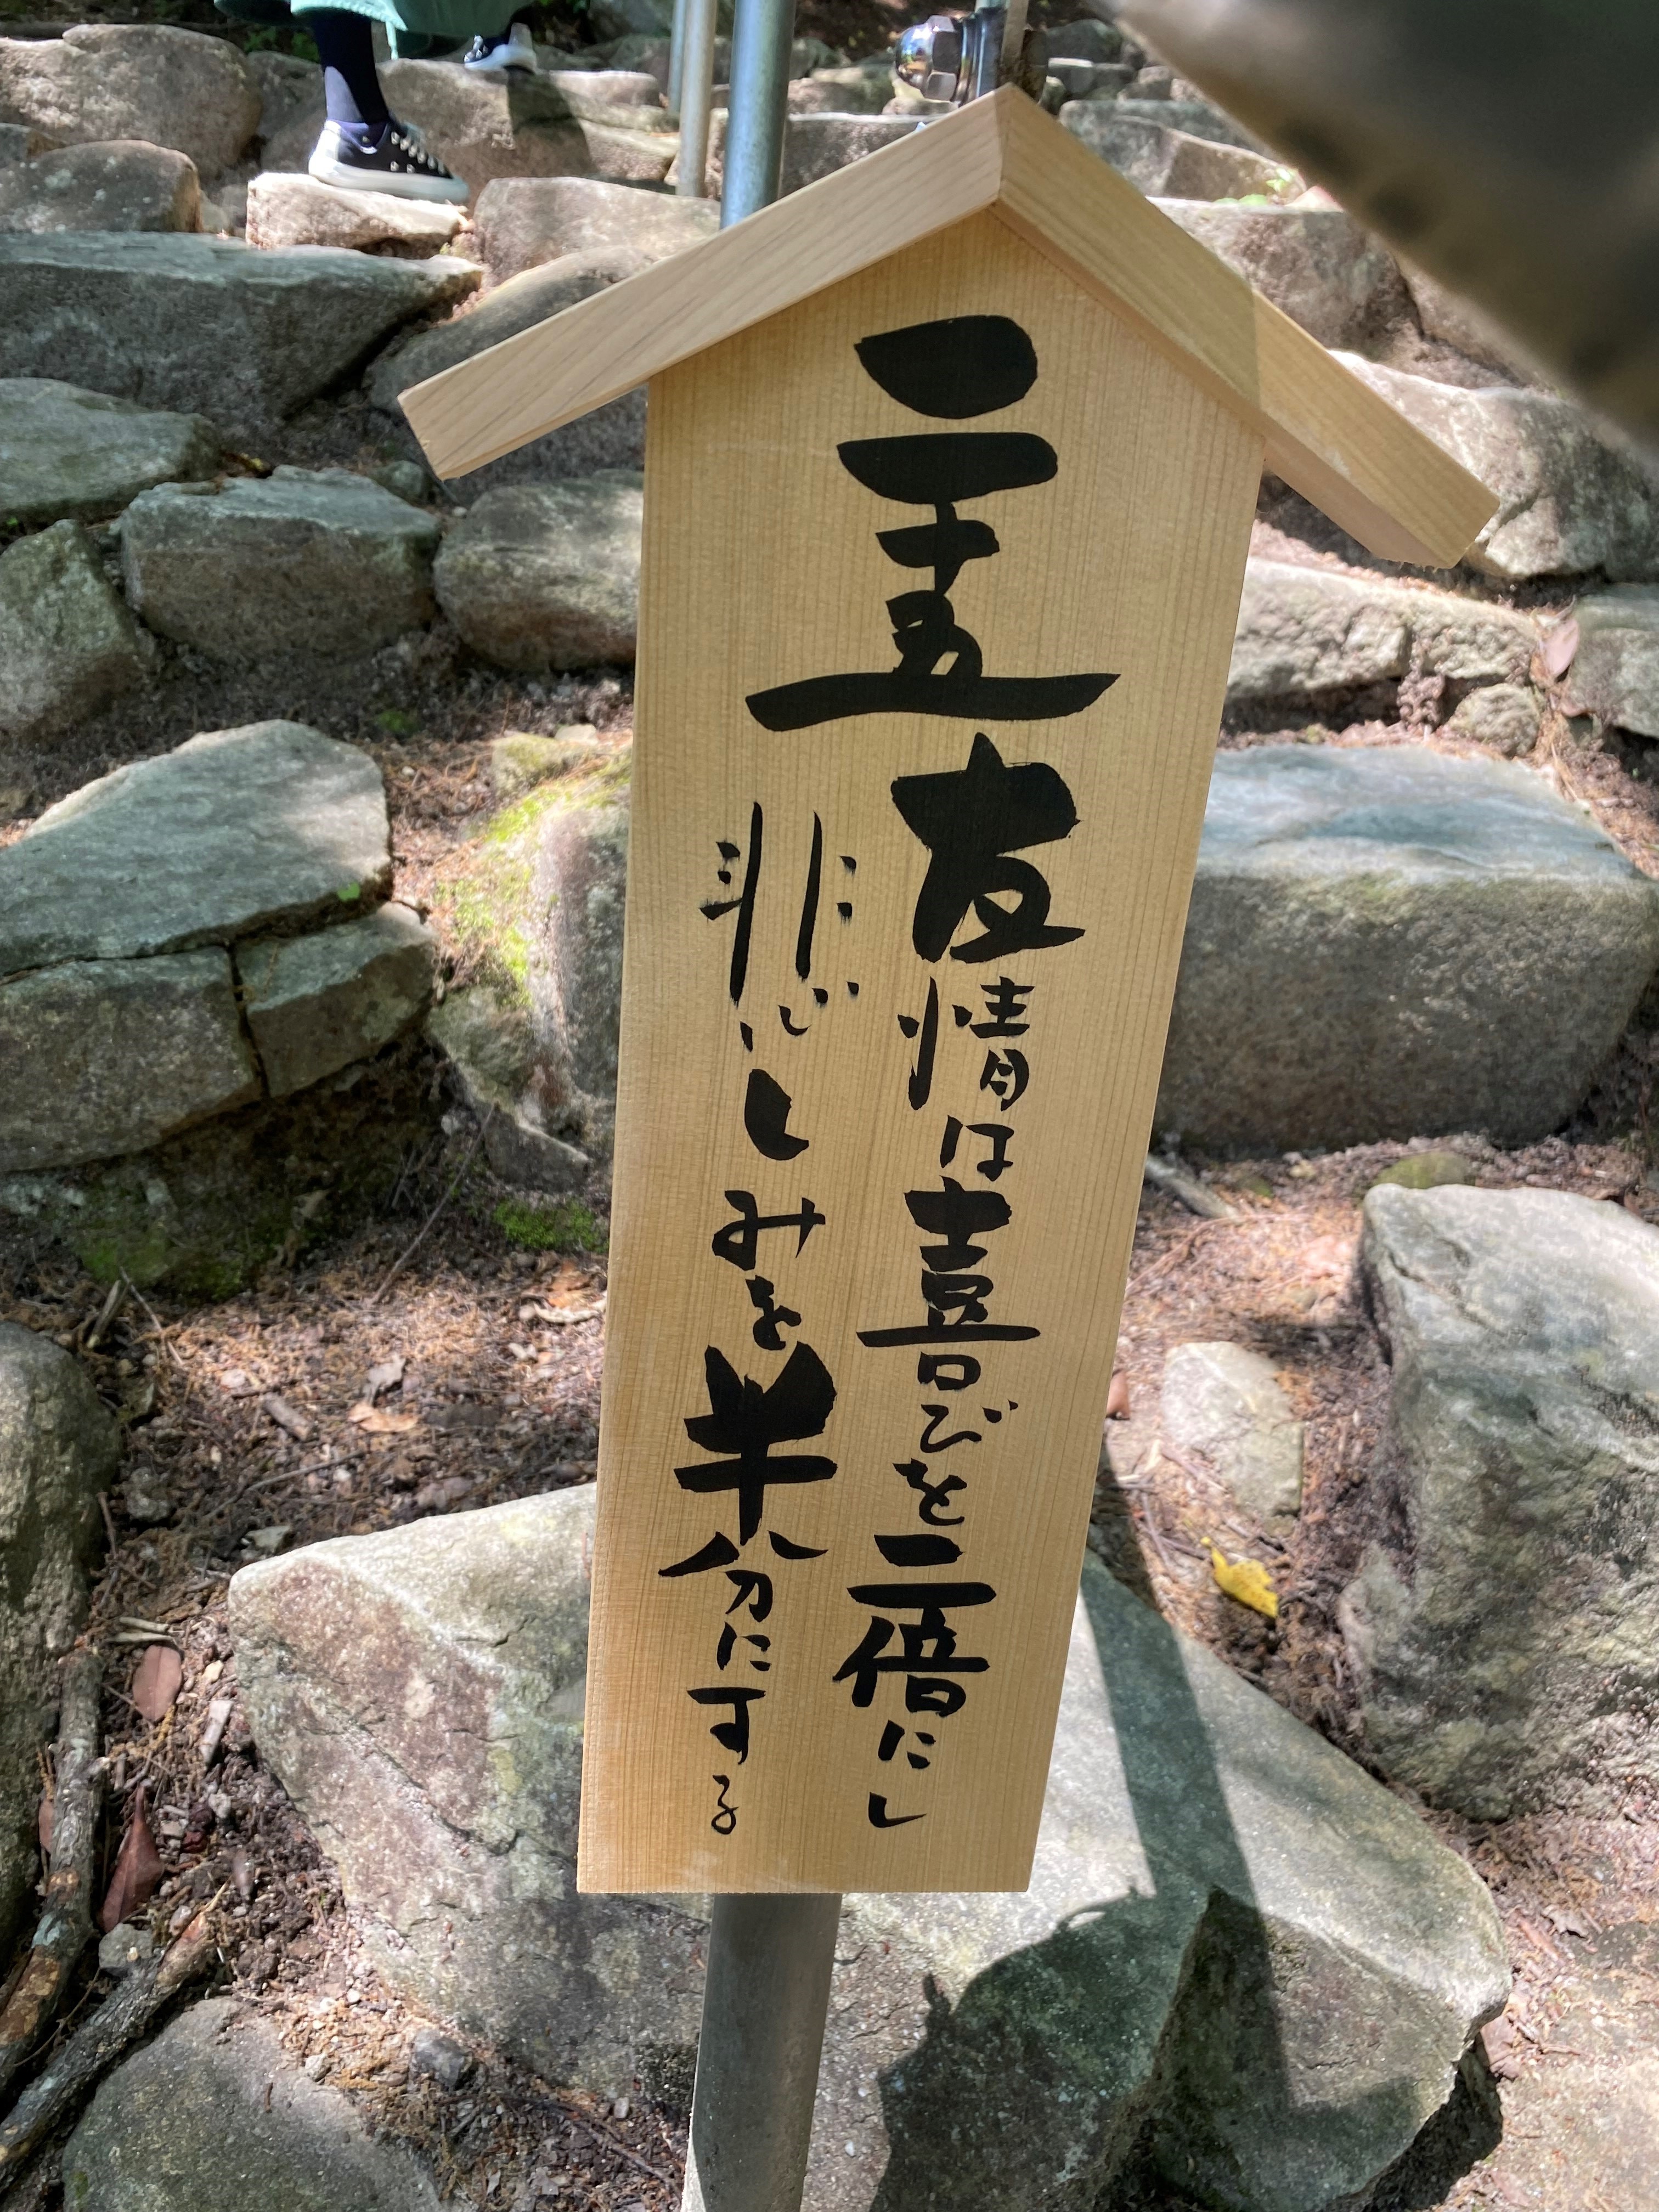 二十五
友情は喜びを二倍にし
悲しみを半分にする